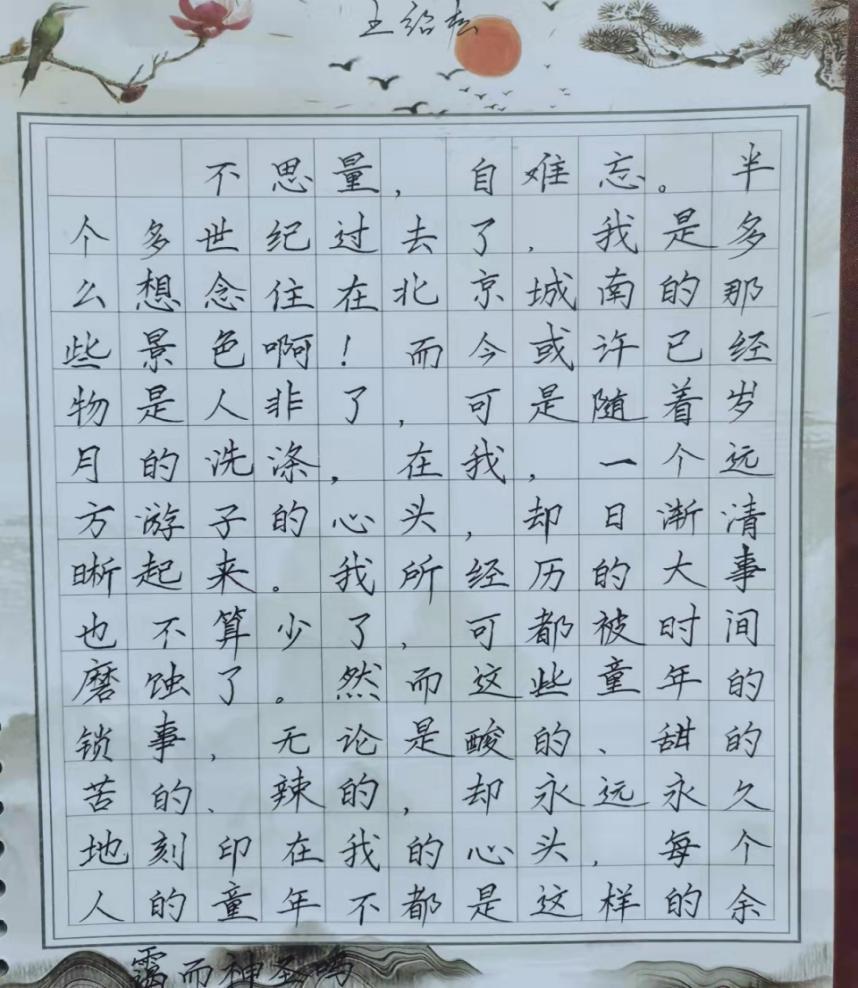 王绍松
不思量，自难忘。半
个多世纪过去了，我是多
么想念住在北京城南的那
些景色啊！而今或许已经
物是人非了，可是随着岁
月的洗涤，在我，一个远
方游子的心头，却日渐清
晰起来。我所经历的大事
也不算少了，可都被时间
磨蚀了。然而这些童年的
锁事，无论是酸的、甜的
苦的、辣的，却永远永久
地刻印在我的心头，每个
人的童年不都是这样的余
霭而神圣吗